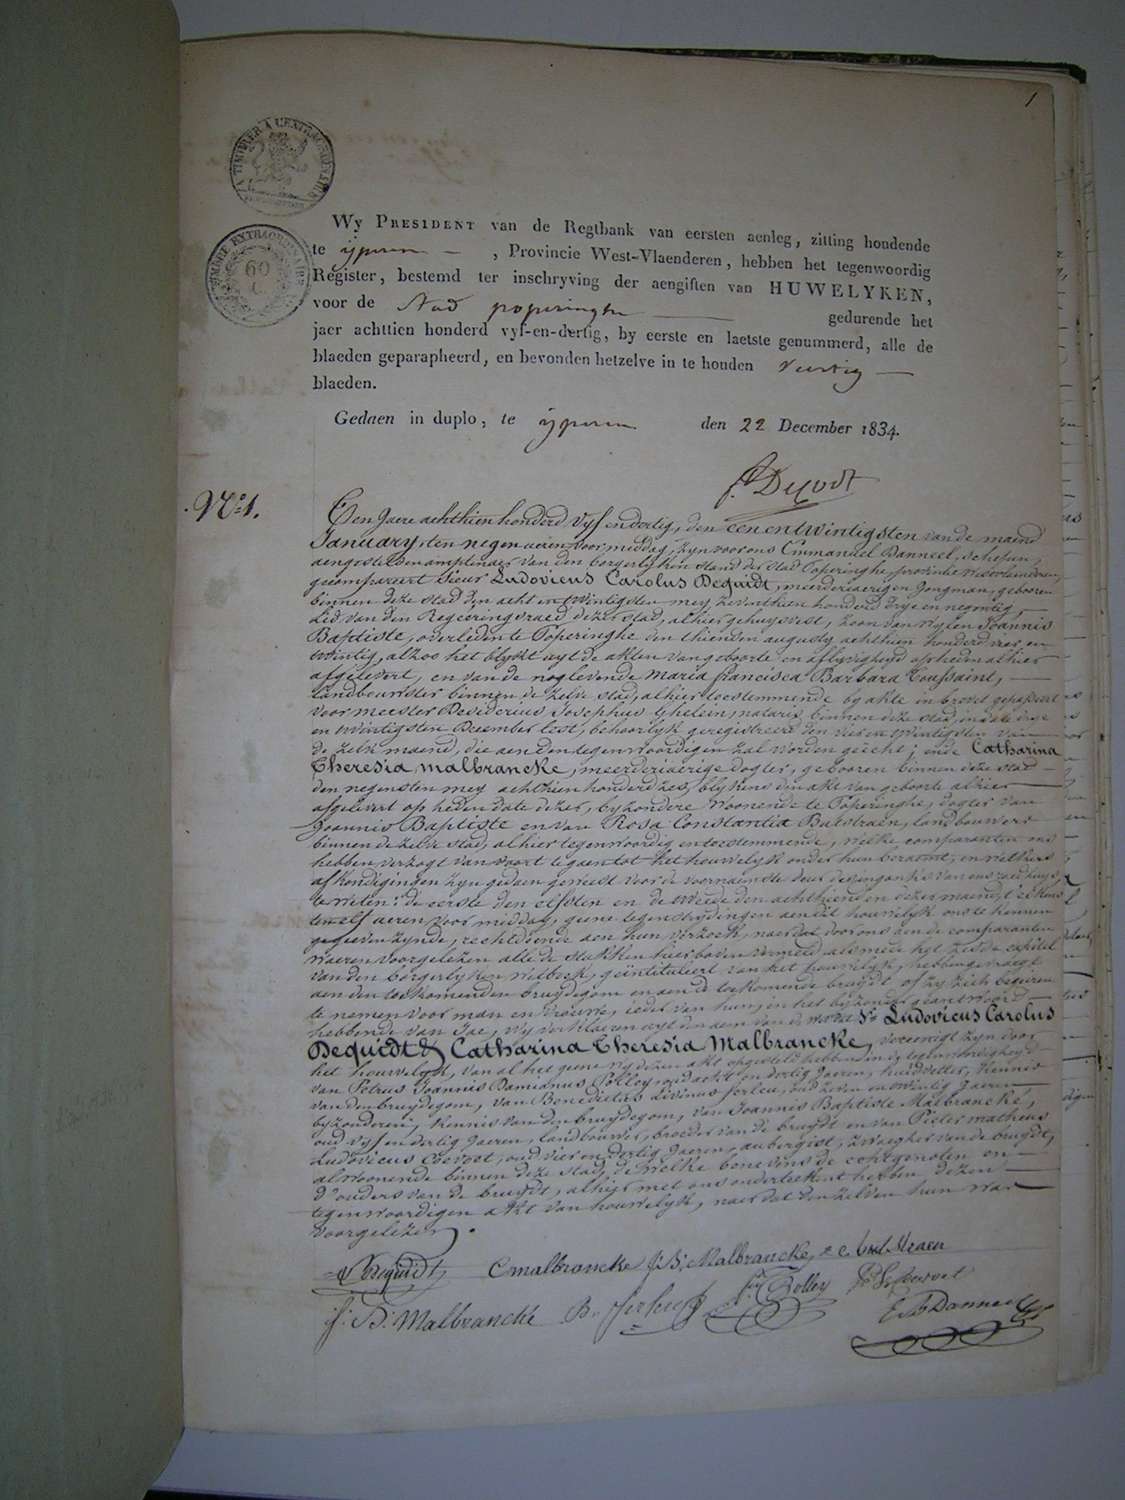 1
A TIMBRER A L'EXTRAORDINAIRE
TIMBRE EXTRAORDINAIRE
60
C
Wy PRESIDENT van de Regtbank van eersten aenleg, zitting houdende
te ijperen , Provincie West-Vlaenderen, hebben het tegenwoordig
Register, bestemd ter inschryving der aengiften van HUWELYKEN,
voor de Stad poperinghe gedurende het
jaer achttien honderd vyf-en-dertig, by eerste en laetste genummerd, alle de
blaeden geparapheerd, en bevonden hetzelve in te houden veertig
blaeden.
Gedaen in duplo, te ijperen den 22 December 1834.
N.º 1.
Den Jaere achthien honderd vyf endertig, den eenentwintigsten van de maend
January, ten negen ueren voor middag, zyn voor ons Emmanuel Danneel, schepen,
aengestelden amptenaer van den borgerlyken stand der stad Poperinghe, provintie westvlaenderen,
gecompareert Sieur Ludovicus Carolus Dequidt, meerderjaerigen Jongman, gebooren
binnen deze stad den acht en twintigsten mey zeventhien honderd drye en negentig,
Lid van den Regeeringsraed dezer stad, alhier gehuysvest, zoon van wylen Joannis
Baptiste, overleden te Poperinghe den thienden augusty achthien honderd vier en
twintig, alzoo het blykt uyt de akten van geboorte en aflyvigheyd op heden alhier
afgelevert, en van de nog levende Maria francisca Barbara Toussaint,
Landbouwster binnen de zelve stad, alhier toestemmende by akte in brevet gepasseert
voor meester Desiderius Josephus Ghelein, notaris binnen deze stad, in date drye
en twintigsten December lest, behoorlyk geregistreerd den vier en twintigsten van
de zelve maend, die aen den tegenwoordigen zal worden gehecht; ende Catharina
Theresia Malbrancke, meerderjaerige dogter, gebooren binnen deze stad
den negensten mey achthien honderd zes, blykens den akt van geboorte alhier
afgelevert op heden date dezer, byzondere woonende te Poperinghe, dogter van
Joannis Baptiste en van Rosa Constantia Baestraen, landbouwers
binnen de zelve stad, alhier tegenwoordig en toestemmende, welke comparanten ons
hebben verzogt van voort te gaen tot het houwelyk onder hun beraemt, en welkers
afkondigingen zyn gedaen geweest voor de voornaemste deur des ingangs van ons raedhuys,
te weten: de eerste den elfsten en de tweede den achthienden dezer maend, t'elkens
ten elf ueren voor middag, geene tegenstrydingen aen dit houwelyk ons te kennen
gegeeven zynde, rechtdoende aen hun verzoek, naer dat door ons aen de comparanten
waeren voorgelezen alle de stukken hier boven vermeld, alsmede het zesde capitel
van den borgerlyken wetboek, geintituleert van het houwelyk, hebben gevraegt
aen den toekomenden bruydegom en aen de toekomende bruydt of zy zich begeiren
te nemen voor man en vrouwe, ieder van hun in het byzonder geantwoord
hebbende van Jae, wy verklaren uyt den naem van de wet dat Sr Ludovicus Carolus
Dequidt & Catharina Theresia Malbrancke, vereenigt zyn door
het houwelyk, van al het gene wy dezen akt opgesteld hebben in de tegenwoordigheyd
van Petrus Joannis Damianus Polley, oud acht en dertig Jaeren, huidvetter, kennis
van den bruydegom, van Benedictus Livinus ferleu, oud zeven en twintig Jaeren
byzonderen, kennis van den bruydegom, van Joannis Baptiste Malbrancke,
oud vyf en dertig Jaeren, landbouwer, broeder van de bruydt en van Pieter matheus
Ludovicus Coevoet, oud vier en dertig Jaeren, aubergist, zwaegher van de bruydt,
al woonende binnen deze stad, de welke benevens de echtgenoten en
d'ouders van de bruydt, alhier met ons onderteekent hebben dezen
tegenwoordigen akt van houwelyk, naer dat den zelven hun was
voorgelezen.
Dequidt Cmalbrancke J: B: Malbrancke
J: B: Malbrancke B. ferleu Polley Coevoet
Danneel